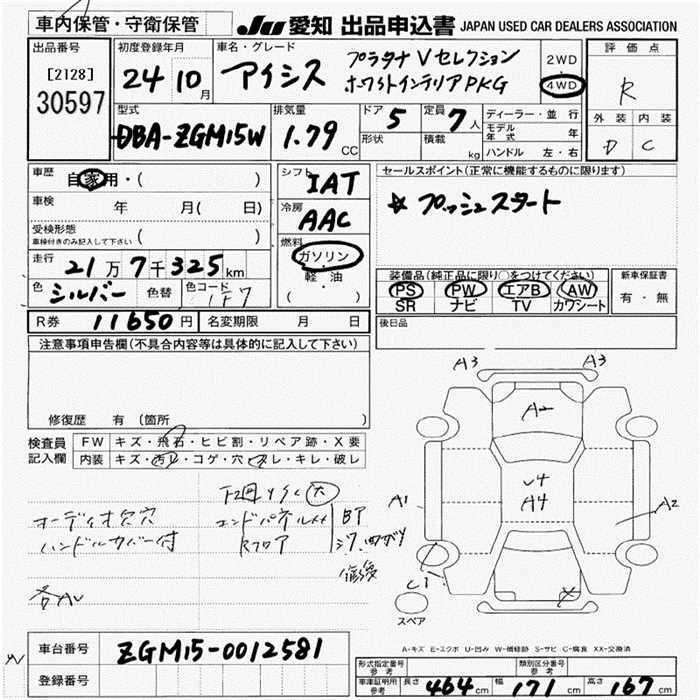 車内保管・守衛保管
JU 愛知 出品申込書 JAPAN USED CAR DEALERS ASSOCIATION
出品番号
[2128]
30597
初度登録年月
24 10月
車名・グレード
アイシス
プラタナ Vセレクション
ホワイトインテリアPKG
2WD
・
4WD
評価点
R
外装 内装
D C
型式
DBA-ZGM15W
排気量
1.79 CC
ドア 5
形状
定員 7人
積載 kg
ディーラー・並行
モデル年式 年
ハンドル 左・右
車歴 自家用・( )
車検 年 月( 日)
受検形態
車検付きのみ記入して下さい ( )
走行 21万7千325km
色 シルバー 色替 色コード 1F7
シフト IAT
冷房 AAC
燃料
ガソリン
軽・油
( )
セールスポイント(正常に機能するものに限ります)
☆ プッシュスタート
装備品(純正品に限り○をつけてください)
PS PW エアB AW
SR ナビ TV カワシート
新車保証書
有・無
R券 11650円 名変期限 月 日
後日品
注意事項申告欄(不具合内容等は具体的に記入して下さい)
修復歴 有(箇所 )
検査員記入欄
FW キズ・飛石・ヒビ割・リペア跡・X要
内装 キズ・汚レ・コゲ・穴・スレ・キレ・破レ
オーディオ欠穴
ハンドルカバー付
各AU
エンドパネル
Rフロア
A3 A3
A2
A1
U4
A4
A2
C1
X
スペア
A-キズ E-エクボ U-凹み W-補修跡 S-サビ C-腐食 XX-交換済
車台番号 ZGM15-0012581
登録番号
形式指定番号 参考
類別区分番号 参考
車庫証明用 参考 長さ 464cm 幅 171cm 高さ 167cm